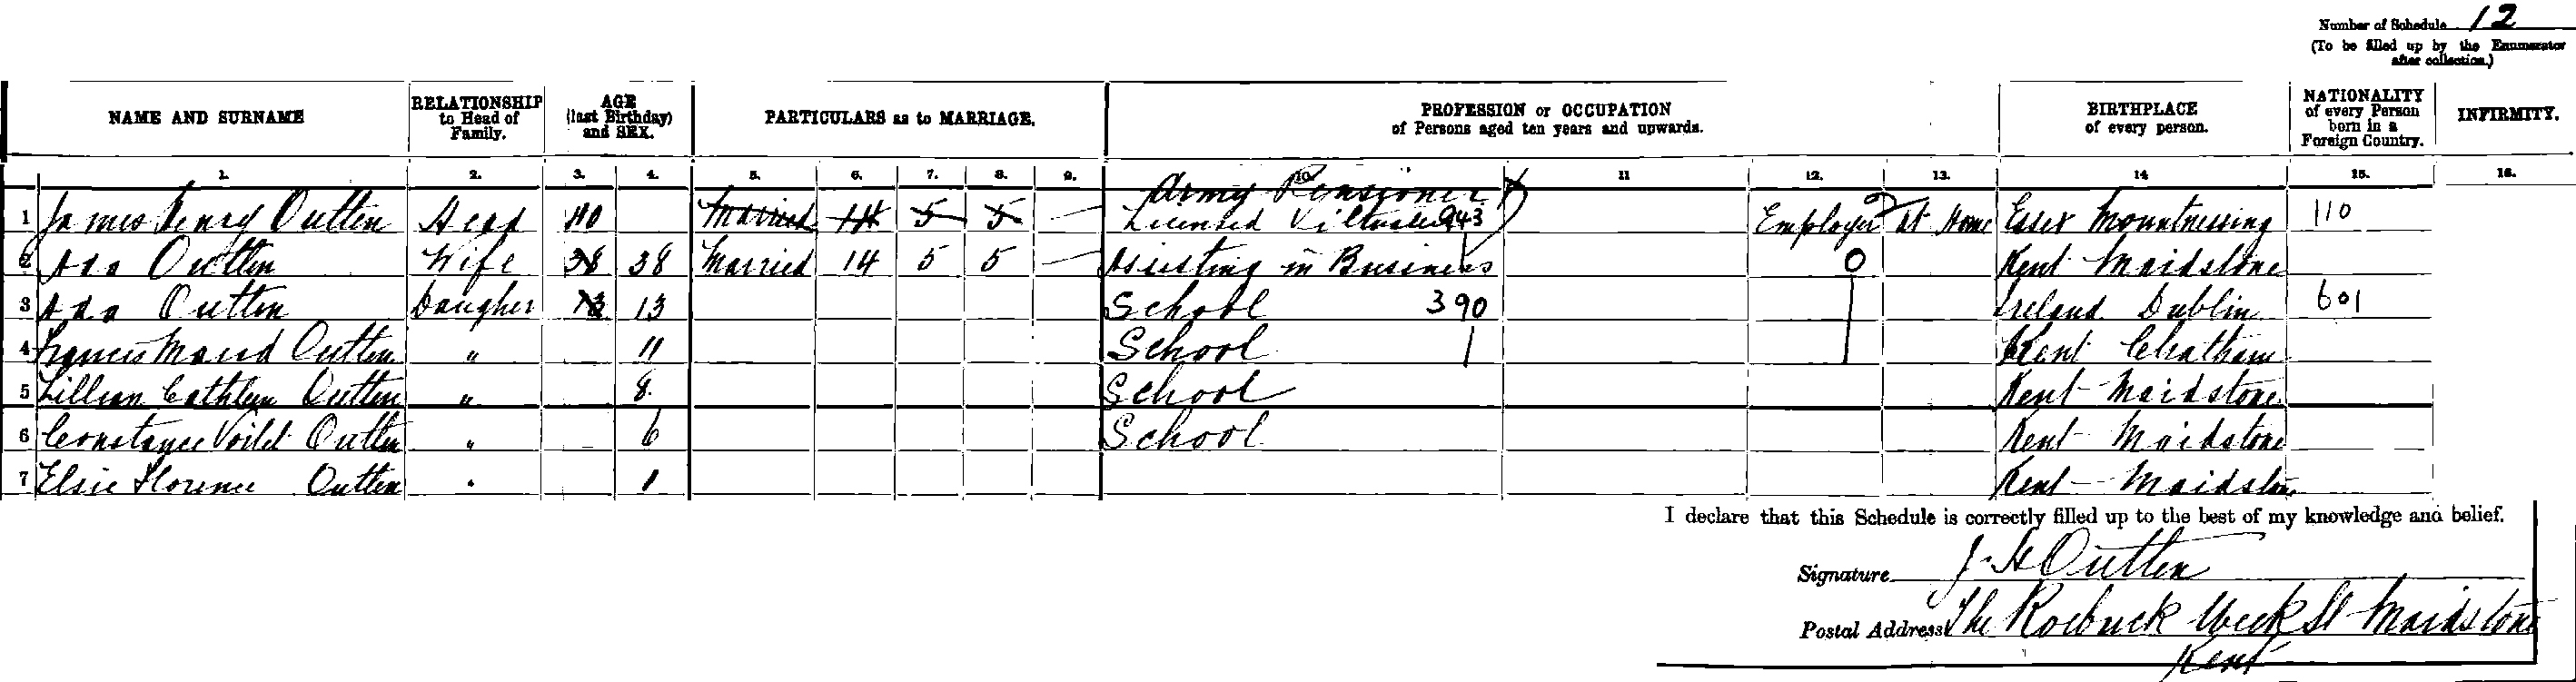 Number of Schedule 12
(To be filled up by the Enumerator
after collection.)
NAME AND SURNAME RELATIONSHIP to Head of Family. AGE (last Birthday) and SEX. PARTICULARS as to MARRIAGE. PROFESSION or OCCUPATION of Persons aged ten years and upwards. BIRTHPLACE of every person. NATIONALITY of every Person born in a Foreign Country. INFIRMITY.
1. 2. 3. 4. 5. 6. 7. 8. 9. 10. 11 12. 13. 14 15. 16.
Army Pensioner
1 James Henry Outten Head 40 Married 14 5 5 Licensed 943 Employer At Home Essex Mountnessing 110
2 Ada Outten Wife 38 38 Married 14 5 5 Assisting in Business 0 Kent Maidstone
3 Ada Outten Daugher 13 13 School 390 Ireland Dublin 601
4 Francis Maud Outten " 11 School Kent Chatham
5 Lillian Cathleen Outten " 8 School Kent Maidstone
6 Constance Voilet Outten " 6 School Kent Maidstone
7 Elsie Florence Outten " 1 Kent Maidstone
I declare that this Schedule is correctly filled up to the best of my knowledge and belief.
Signature J. H Outten
Postal Address The Roebuck Week St Maidstone
Kent